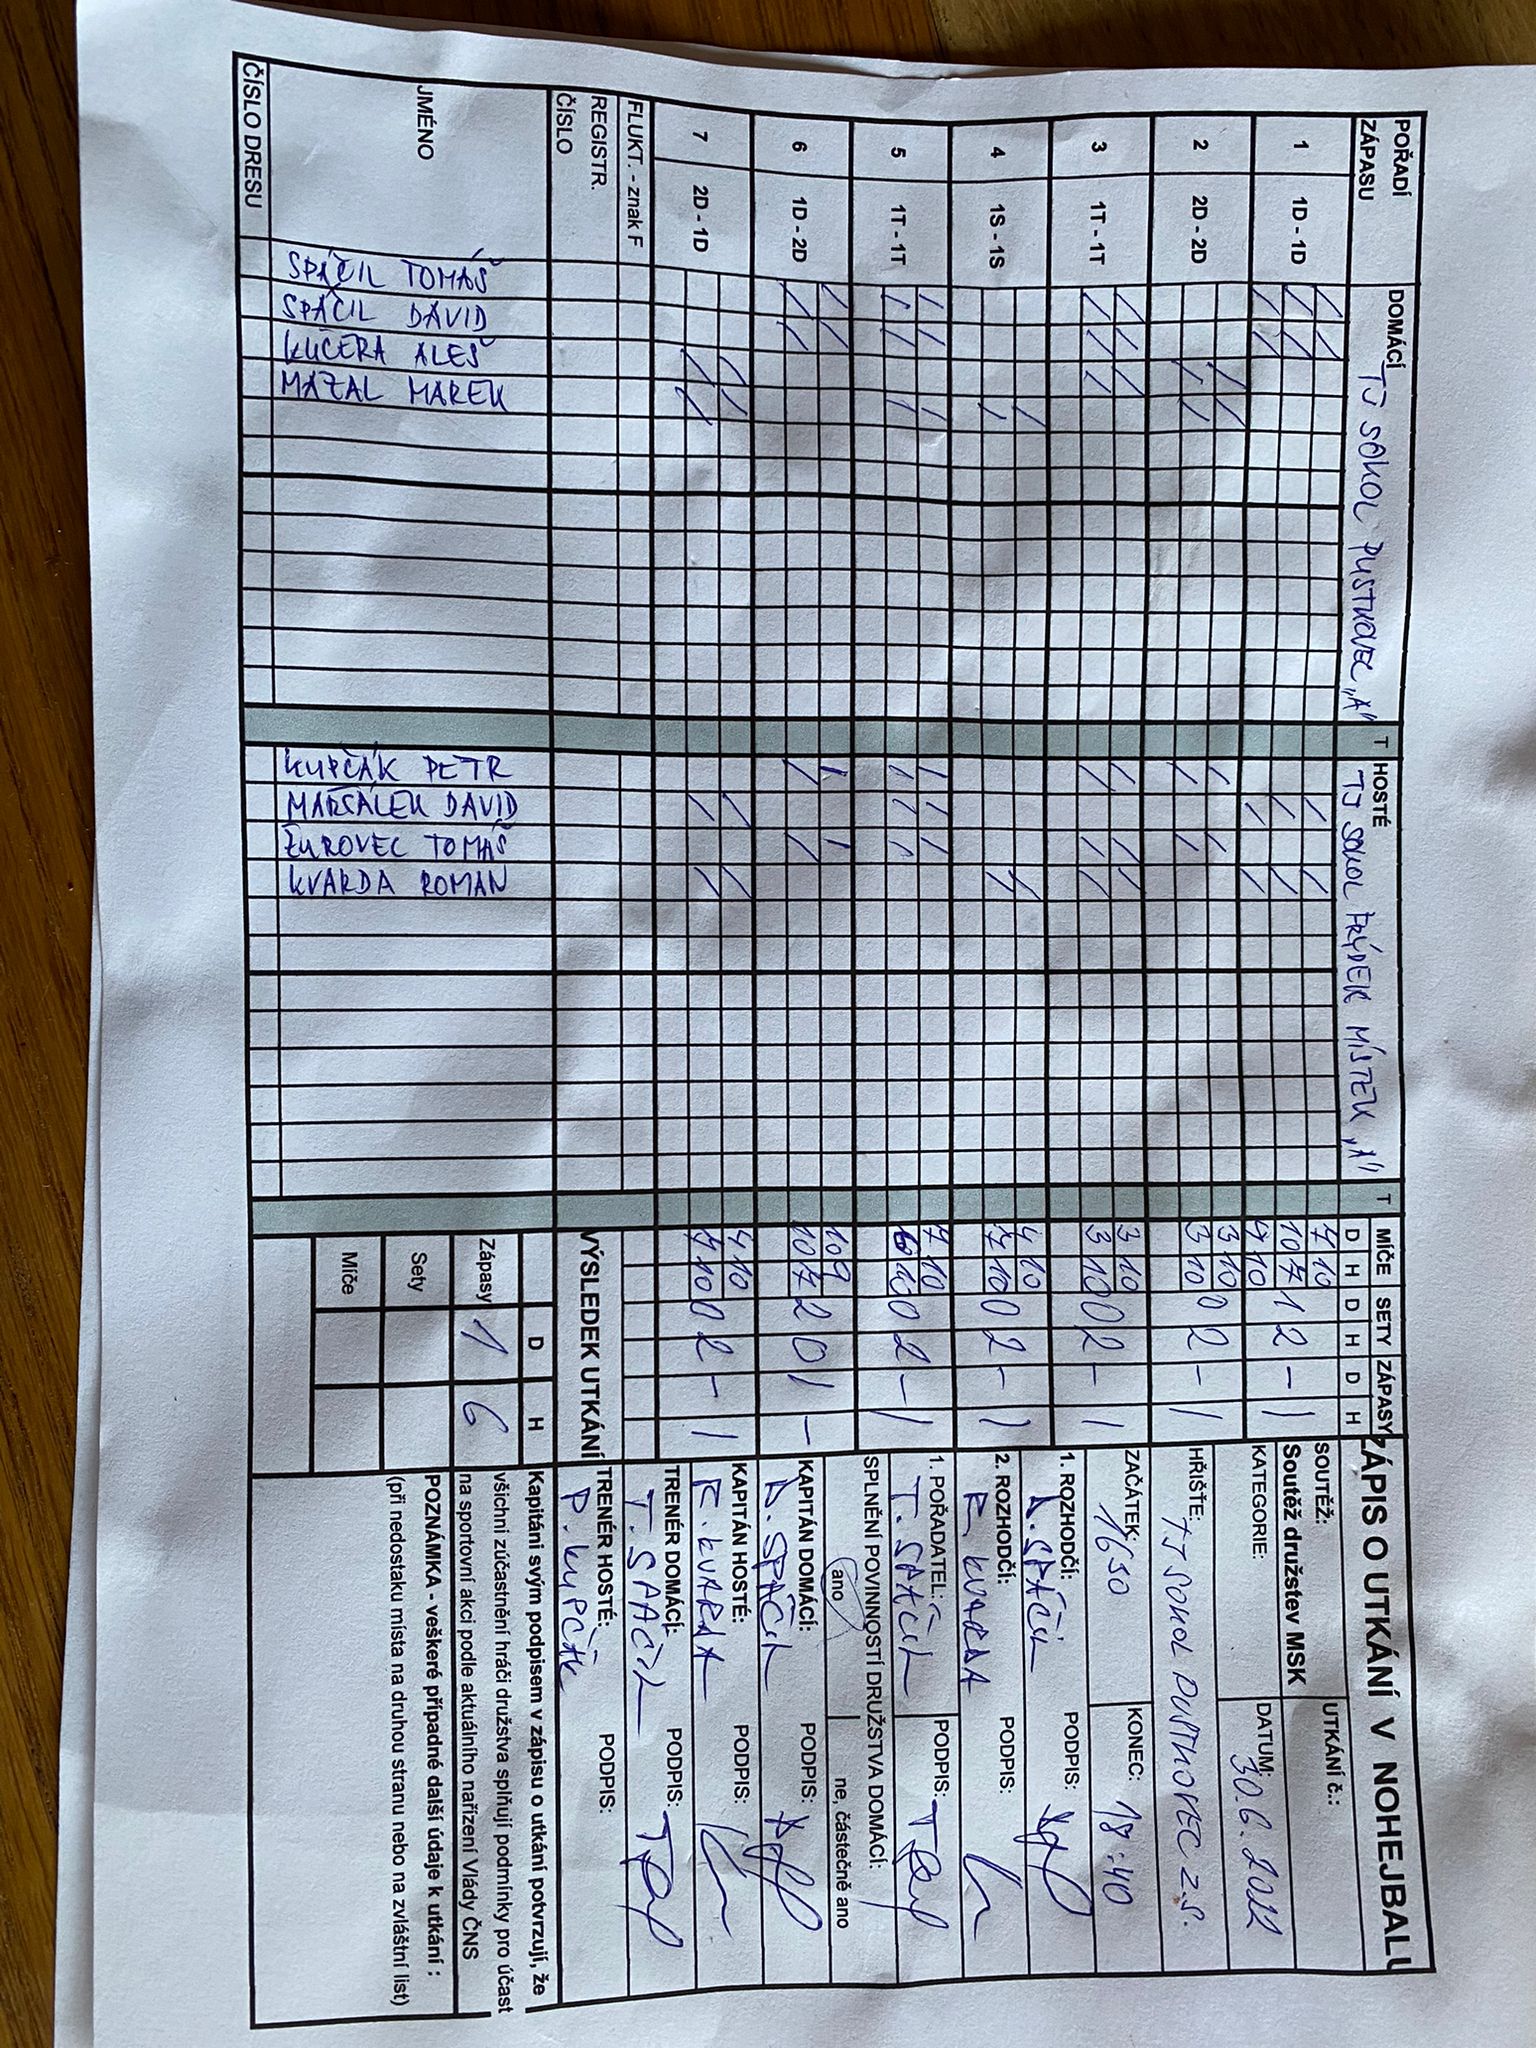 POŘADÍ ZÁPASU
DOMÁCÍ
TJ SOKOL PUSTKOVEC „A"
T
HOSTÉ
TJ SOKOL FRÝDEK MÍSTEK „A"
T
MÍČE SETY ZÁPASY
D H D H D H
1 1D - 1D
7 10
10 7 1 2 - 1
7 10
2 2D - 2D
3 10
3 10 0 2 - 1
3 1T - 1T
3 10
3 10 0 2 - 1
4 1S - 1S
4 10
7 10 0 2 - 1
5 1T - 1T
7 10
6 10 0 2 - 1
6 1D - 2D
10 9
10 7 2 0 1 -
7 2D - 1D
4 10
7 10 0 2 - 1
FLUKT. - znak F
REGISTR. ČÍSLO
JMÉNO
SPÁČIL TOMÁŠ
SPÁČIL DAVID
KUČERA ALEŠ
MAZAL MAREK
KUPČÁK PETR
MARSÁLEK DAVID
ŽUROVEC TOMÁŠ
KVARDA ROMAN
ČÍSLO DRESU
VÝSLEDEK UTKÁNÍ
D H
Zápasy 1 6
Sety
Míče
ZÁPIS O UTKÁNÍ V NOHEJBALU
SOUTĚŽ:
Soutěž družstev MSK
UTKÁNÍ č.:
KATEGORIE:
DATUM: 30.6.2022
HŘIŠTE: TJ SOKOL PUSTKOVEC z.s.
ZAČÁTEK: 1630
KONEC: 18:40
1. ROZHODČÍ: D. SPÁČIL
PODPIS:
2. ROZHODČÍ: R. KVARDA
PODPIS:
1. POŘADATEL: T. SPÁČIL
PODPIS:
SPLNĚNÍ POVINNOSTÍ DRUŽSTVA DOMÁCÍ:
ano
ne, částečně ano
KAPITÁN DOMÁCÍ: D. SPÁČIL
PODPIS:
KAPITÁN HOSTÉ: R. KVARDA
PODPIS:
TRENÉR DOMÁCÍ: T. SPÁČIL
PODPIS:
TRENÉR HOSTÉ: P. KUPČÁK
PODPIS:
Kapitáni svým podpisem v zápisu o utkání potvrzují, že
všichni zúčastnění hráči družstva splňují podmínky pro účast
na sportovní akci podle aktuálního nařízení Vlády ČNS
POZNÁMKA - veškeré případné další údaje k utkání :
(při nedostaku místa na druhou stranu nebo na zvláštní list)